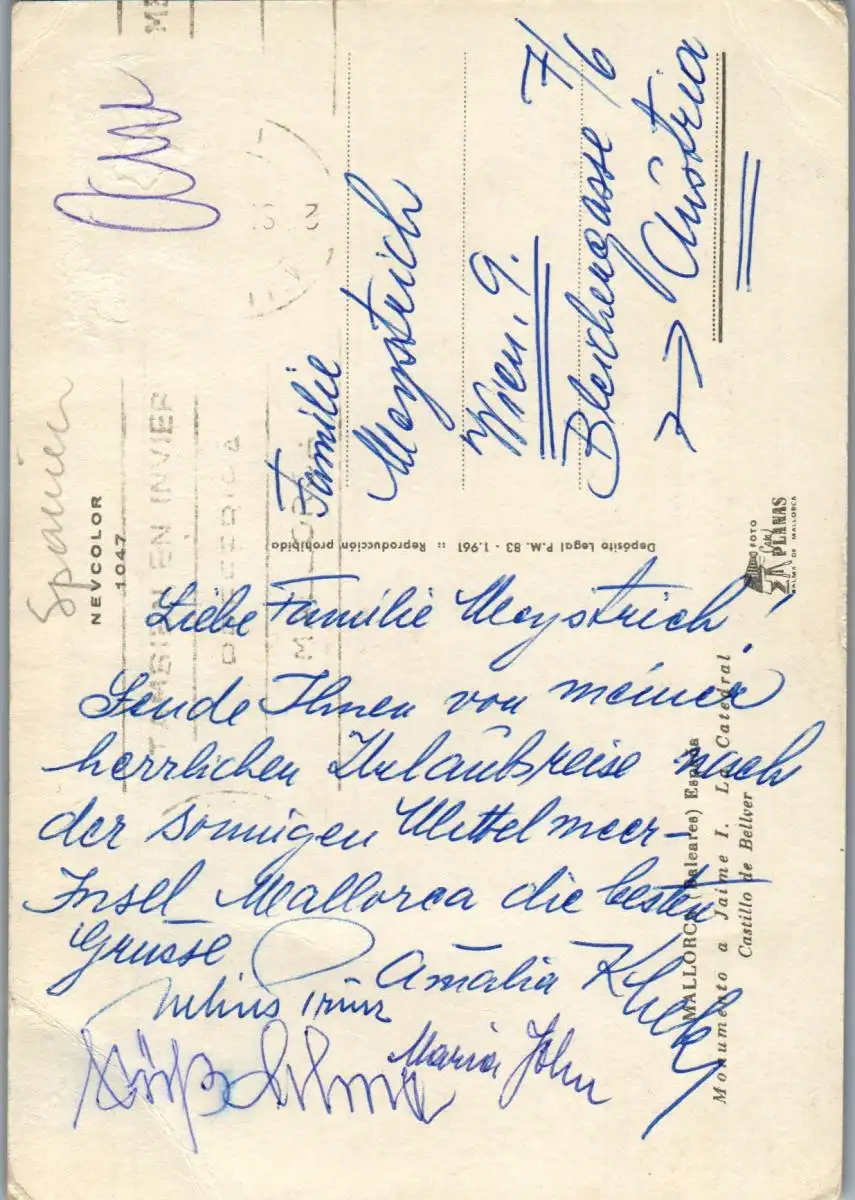 Spanien
NEVCOLOR
1047
TAMBIEN EN INVIER
Liebe Familie Moystrich!
Sende Ihnen von meiner
herrlichen Urlaubsreise nach
der sonnigen Mittelmeer-
Insel Mallorca die besten
Grüsse
Amalia
Maria John
Familie
Moystrich
Wien, 9.
Bleichergasse 7/6
Austria
Depósito Legal P.M. 83 - 1.961 :: Reproducción prohibida
FOTO
PLANAS
PALMA DE MALLORCA
MALLORCA (Baleares) España
Monumento a Jaime I. La Catedral
Castillo de Bellver